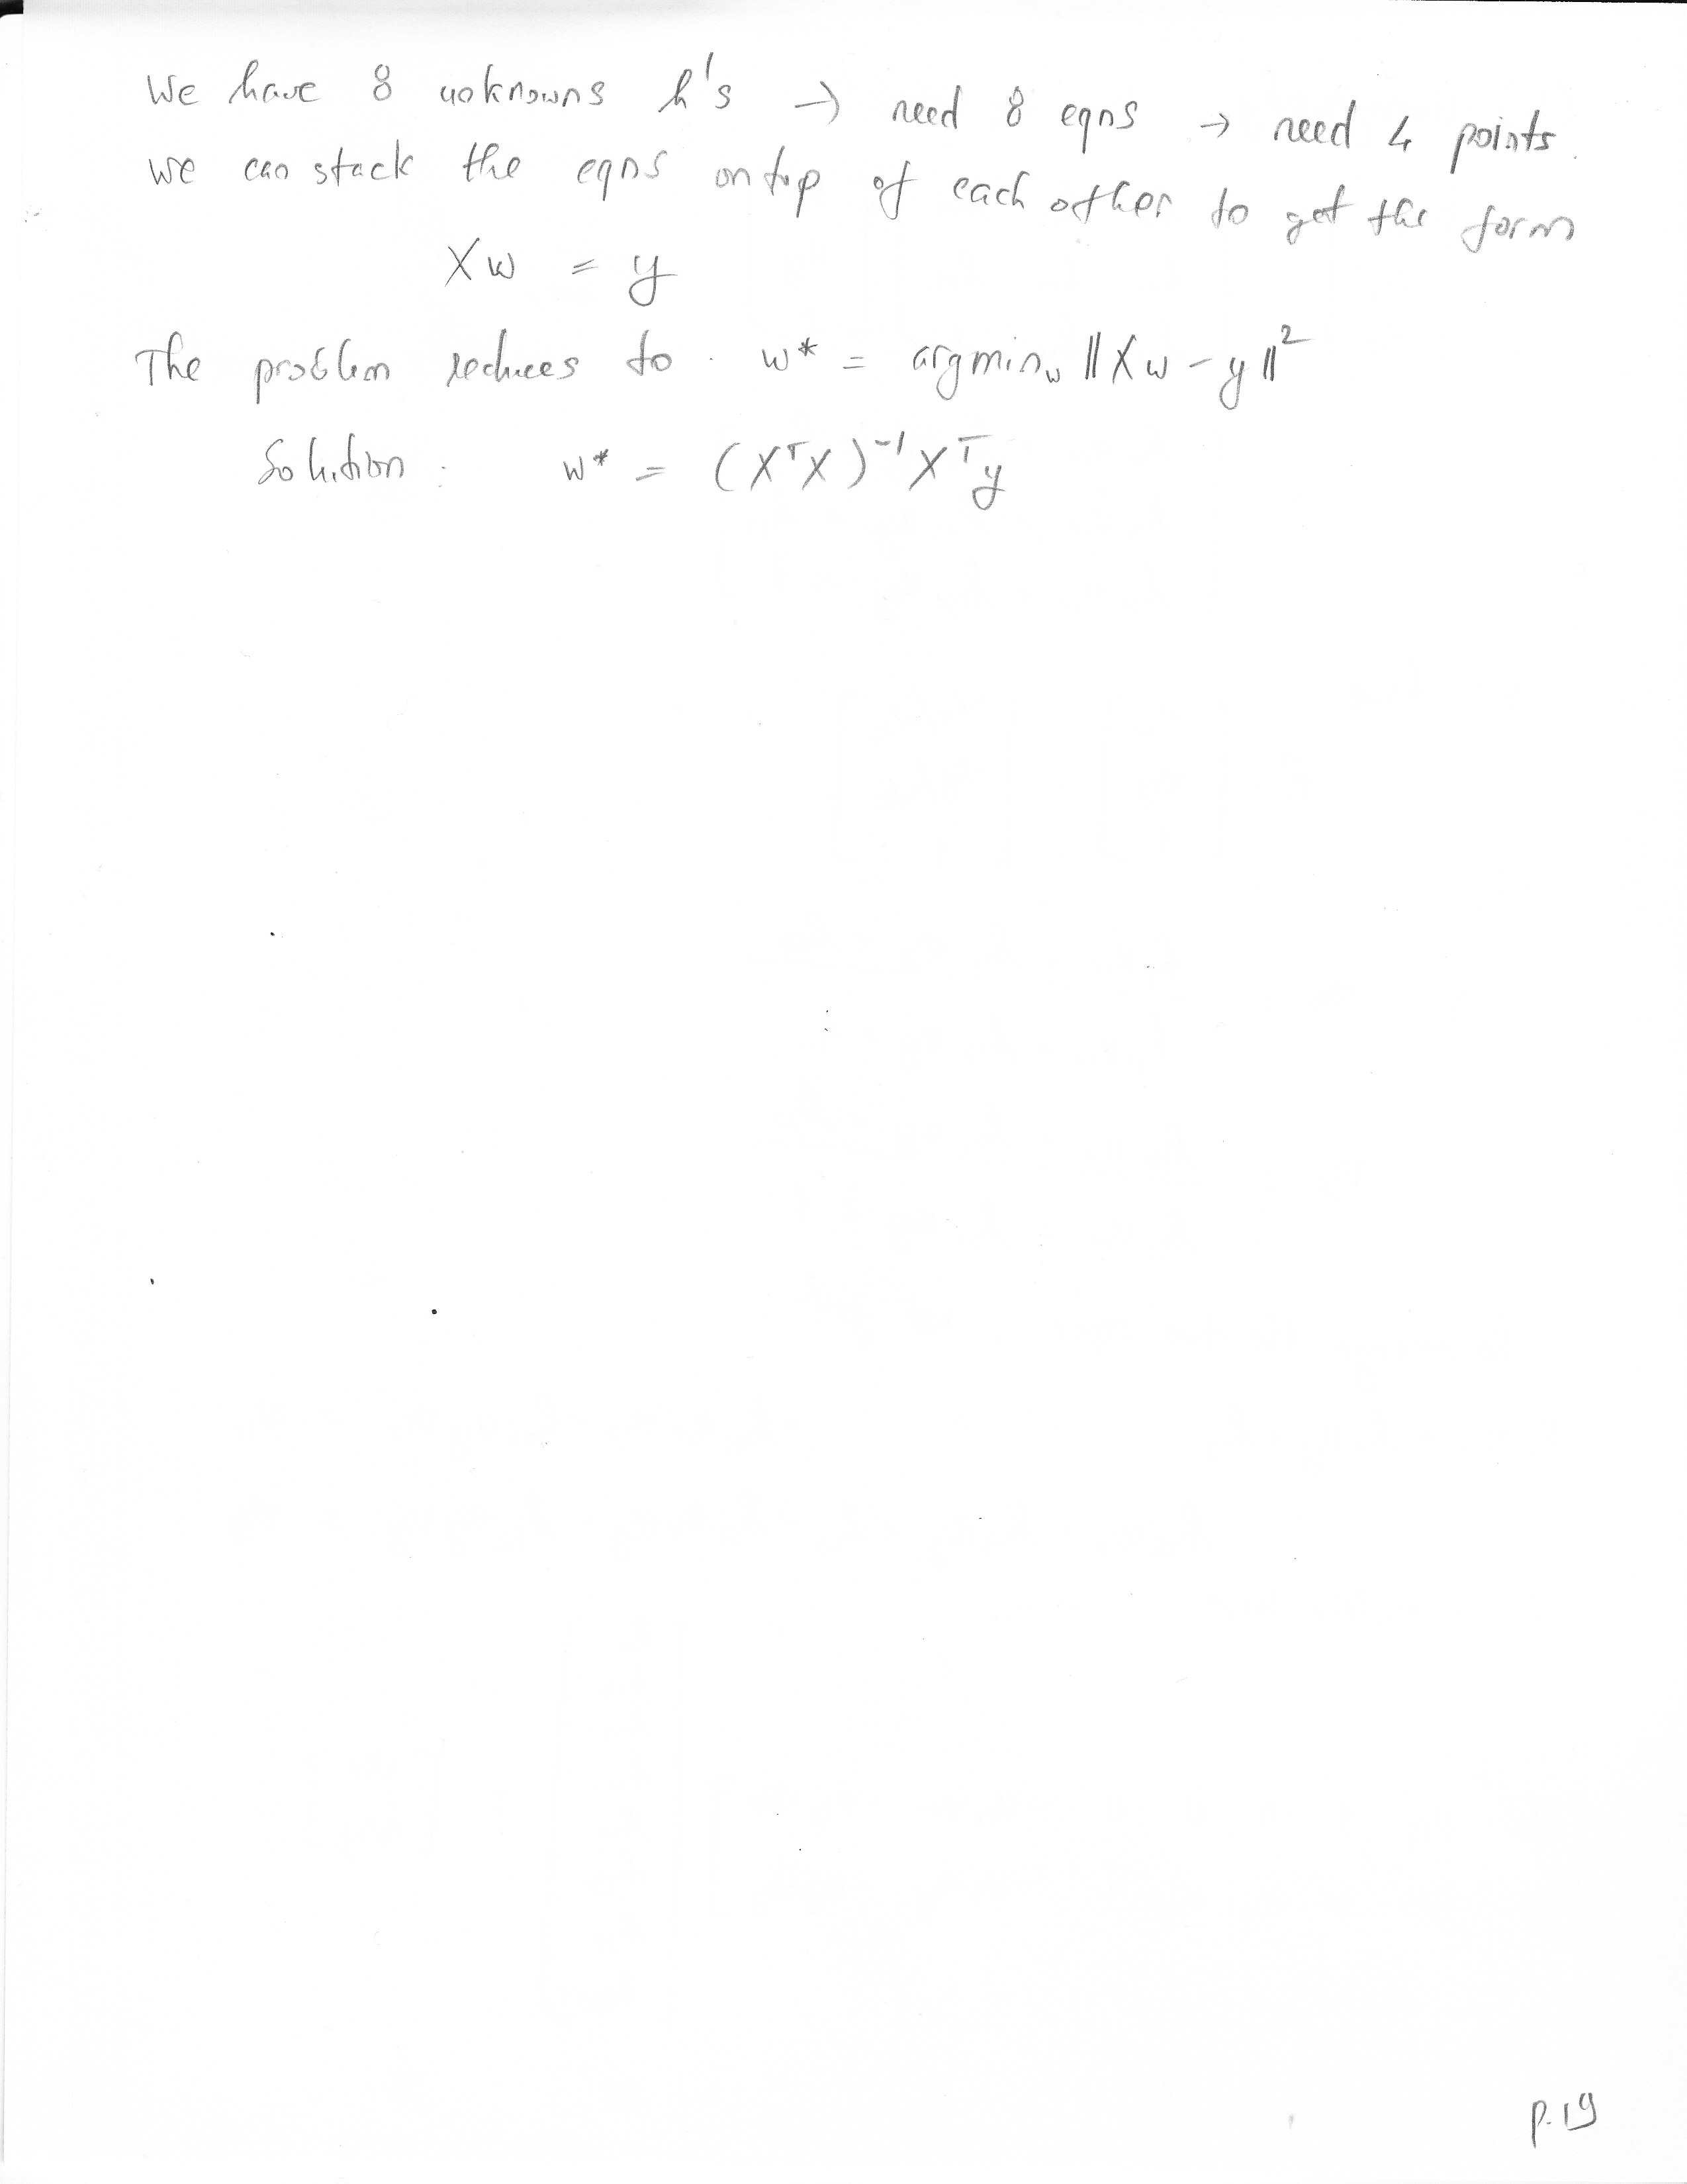 We have 8 unknowns h's → need 8 eqns → need 4 points.
we can stack the eqns on top of each other to get the form
Xw = y
The problem reduces to . w* = argmin_w ||Xw - y||²
Solution : w* = (XᵀX)⁻¹Xᵀy
p.19